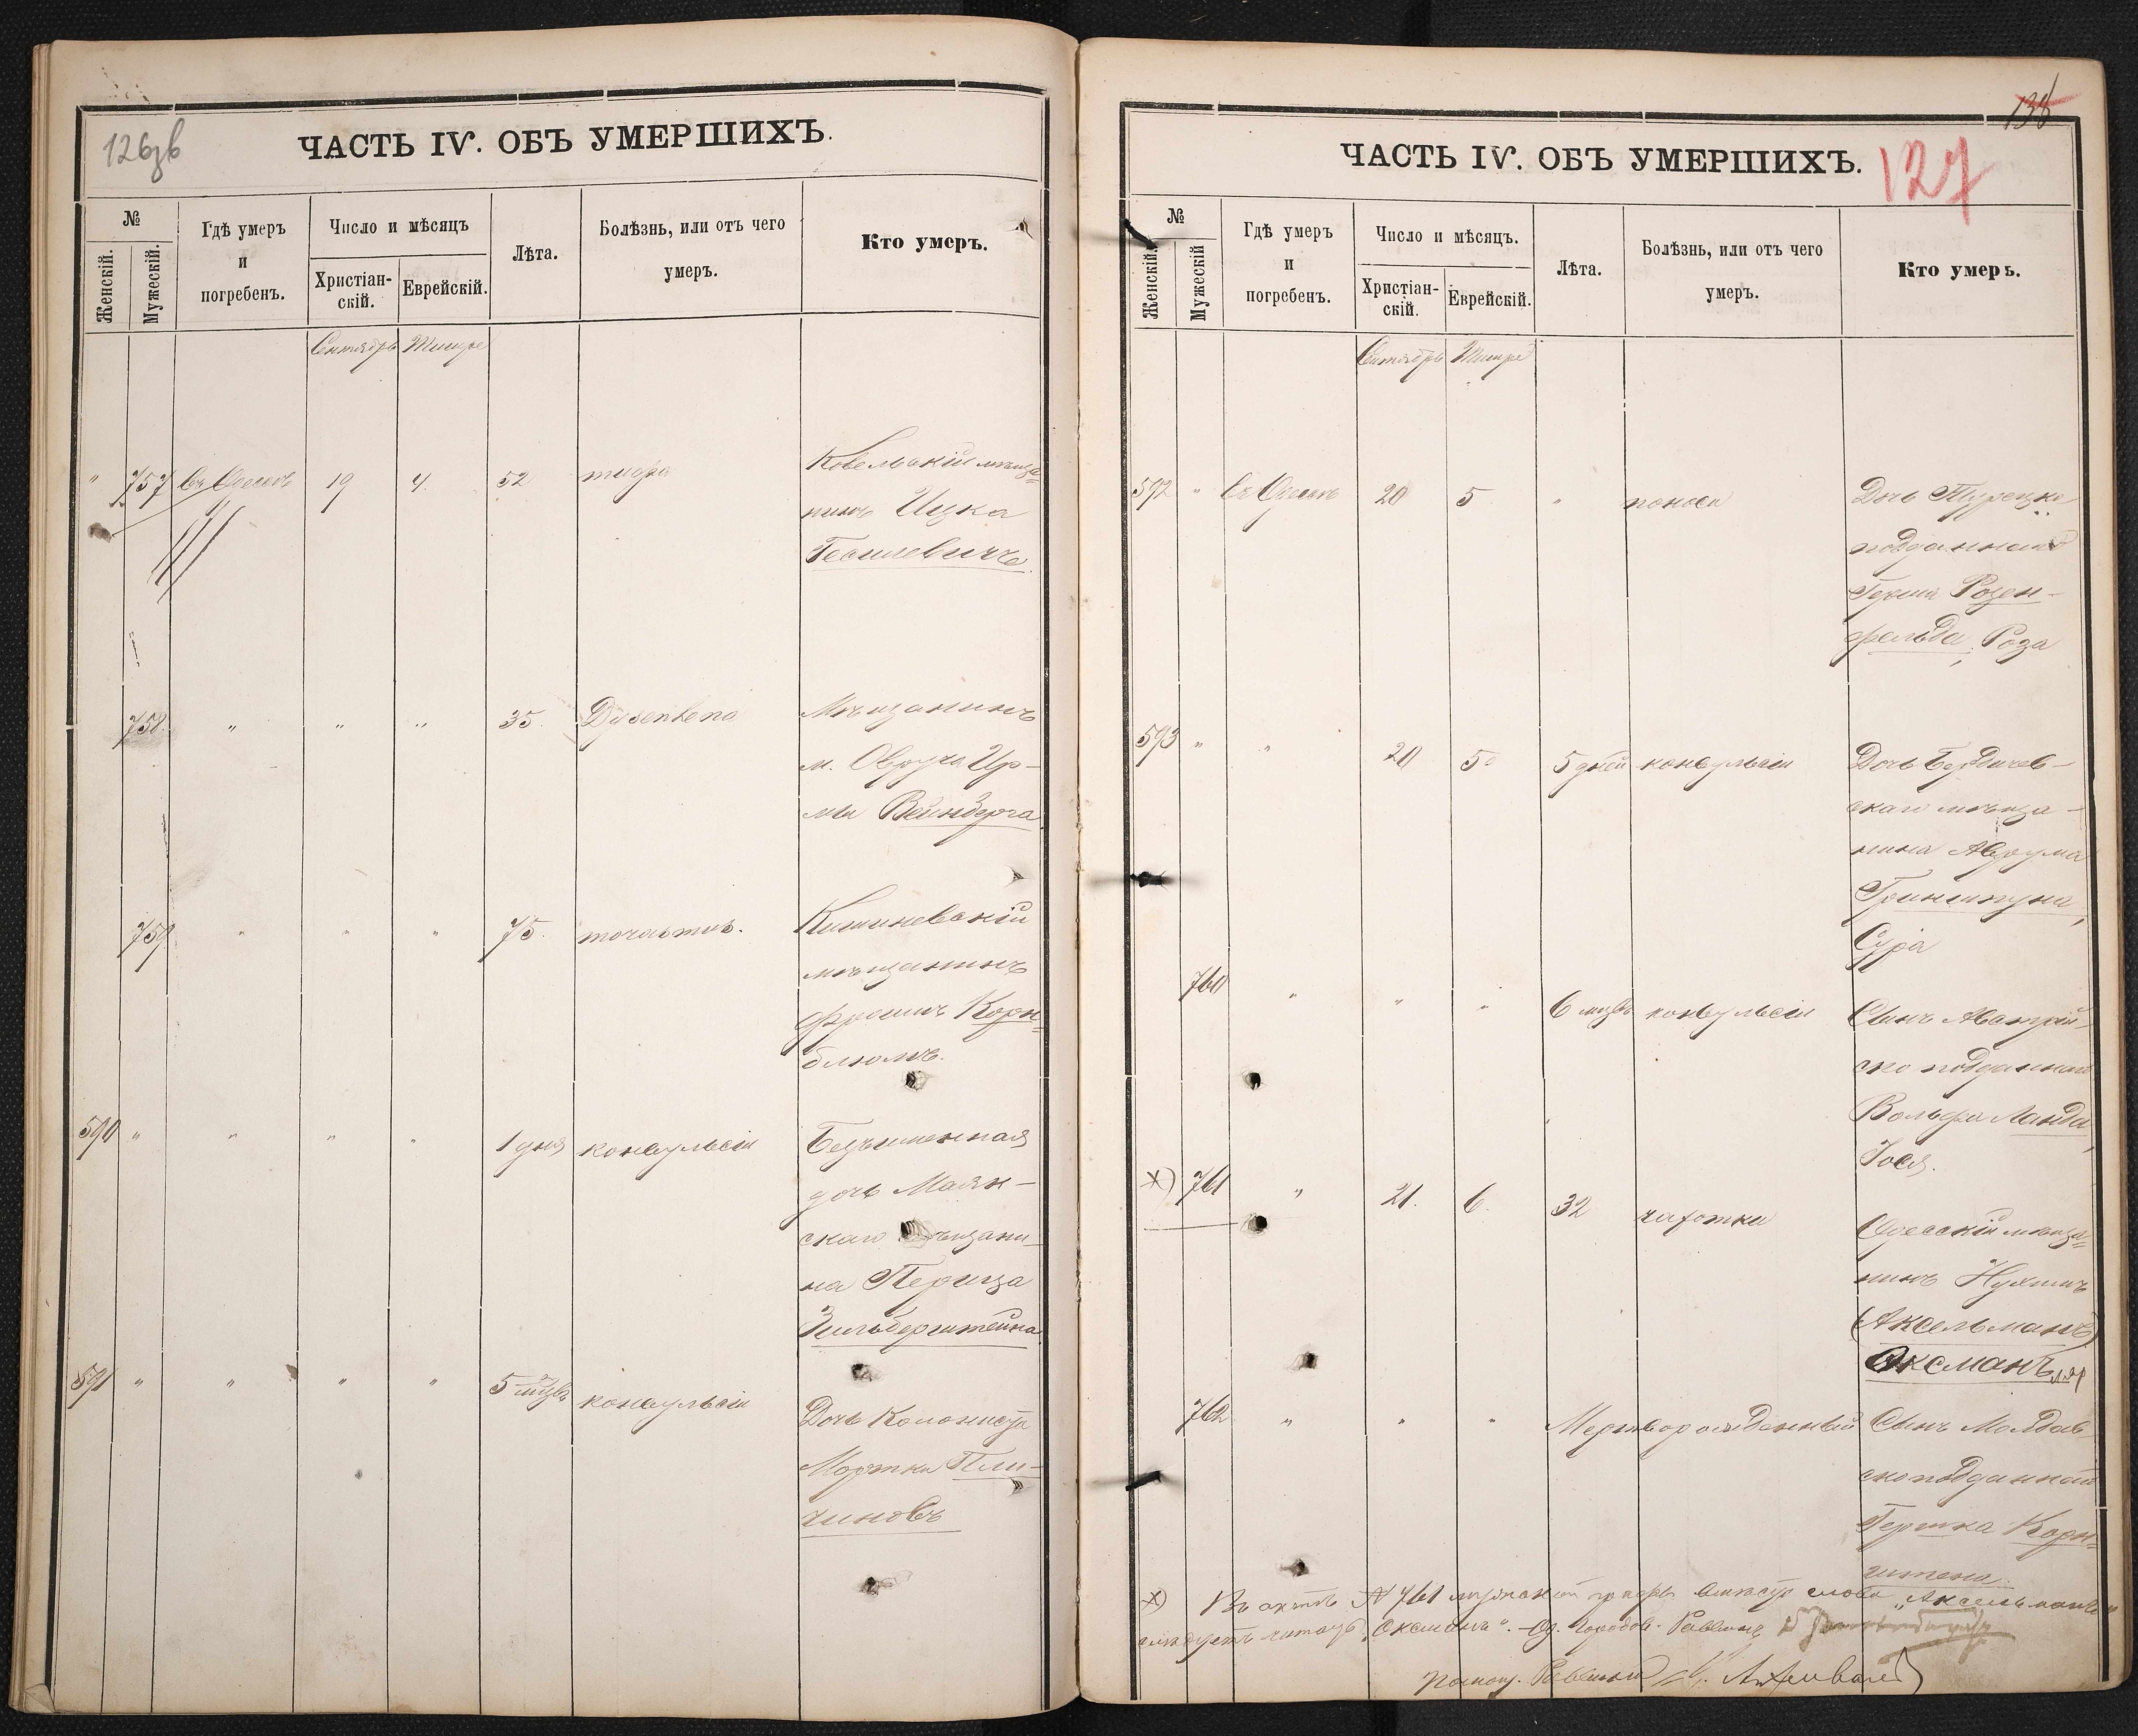 126 об
ЧАСТЬ IV. ОБЪ УМЕРШИХЪ.
№
Женскій.
Мужескій.
Гдѣ умеръ
и
погребенъ.
Число и мѣсяцъ
Христіан-
скій.
Еврейскій.
Лѣта.
Болѣзнь, или отъ чего
умеръ.
Кто умеръ.
Сентябрь Тишре
" 757 Въ Одессѣ 19 4. 52 тифа Ковельскій мѣща=
нинъ Ицка
Гесилевичъ.
758 " " " 35. Dysenteria Мѣщанинъ
м. Овруча Ир-
ма Вейнберга
759 " " " 75. Кишиневскій
мѣщанинъ
Фроимъ Корн=
блюмъ.
590 " " " " 1 дня конвульсіи Безъименная
дочь Маян-
скаго мѣщани-
на Переца
Зильберштейна
591 " " " " 5 мцвъ конвульсіи Дочь Колониста
Мортка Пли-
хиновъ
138
127
ЧАСТЬ IV. ОБЪ УМЕРШИХЪ.
№
Женскій.
Мужескій
Гдѣ умеръ
и
погребенъ.
Число и мѣсяцъ.
Христіан-
скій.
Еврейскій.
Лѣта.
Болѣзнь, или отъ чего
умеръ.
Кто умеръ.
Сентябрь Тишре
592 " Въ Одессѣ 20 5 " поноса Дочь Турецко
подданнаго
Розен-
фельда, Роза
593 " " 20 5 5 дней конвульсіи Дочь Бердичев-
скаго мѣща-
нина Аврума
Гриншпуна,
Сура
760 " " " 6 мцвъ конвульсіи Сынъ Австрій-
ско подданнаго
Вольфа Ланда,
Іося.
X) 761 " 21. 6. 32 чахотки Одесскій мѣща=
нинъ Нухимъ
(Аксельманъ)
Оксманъ
762 " " " Мертворожденный Сынъ Молдав-
скоподданнаго
Гершка Корн=
штена.
X) Въ актѣ № 761 мужской графы вмѣсто слова „Аксельманъ"
слѣдуетъ читать „Оксманъ". - Од. Городов. Раввинъ
Помощ. Раввина